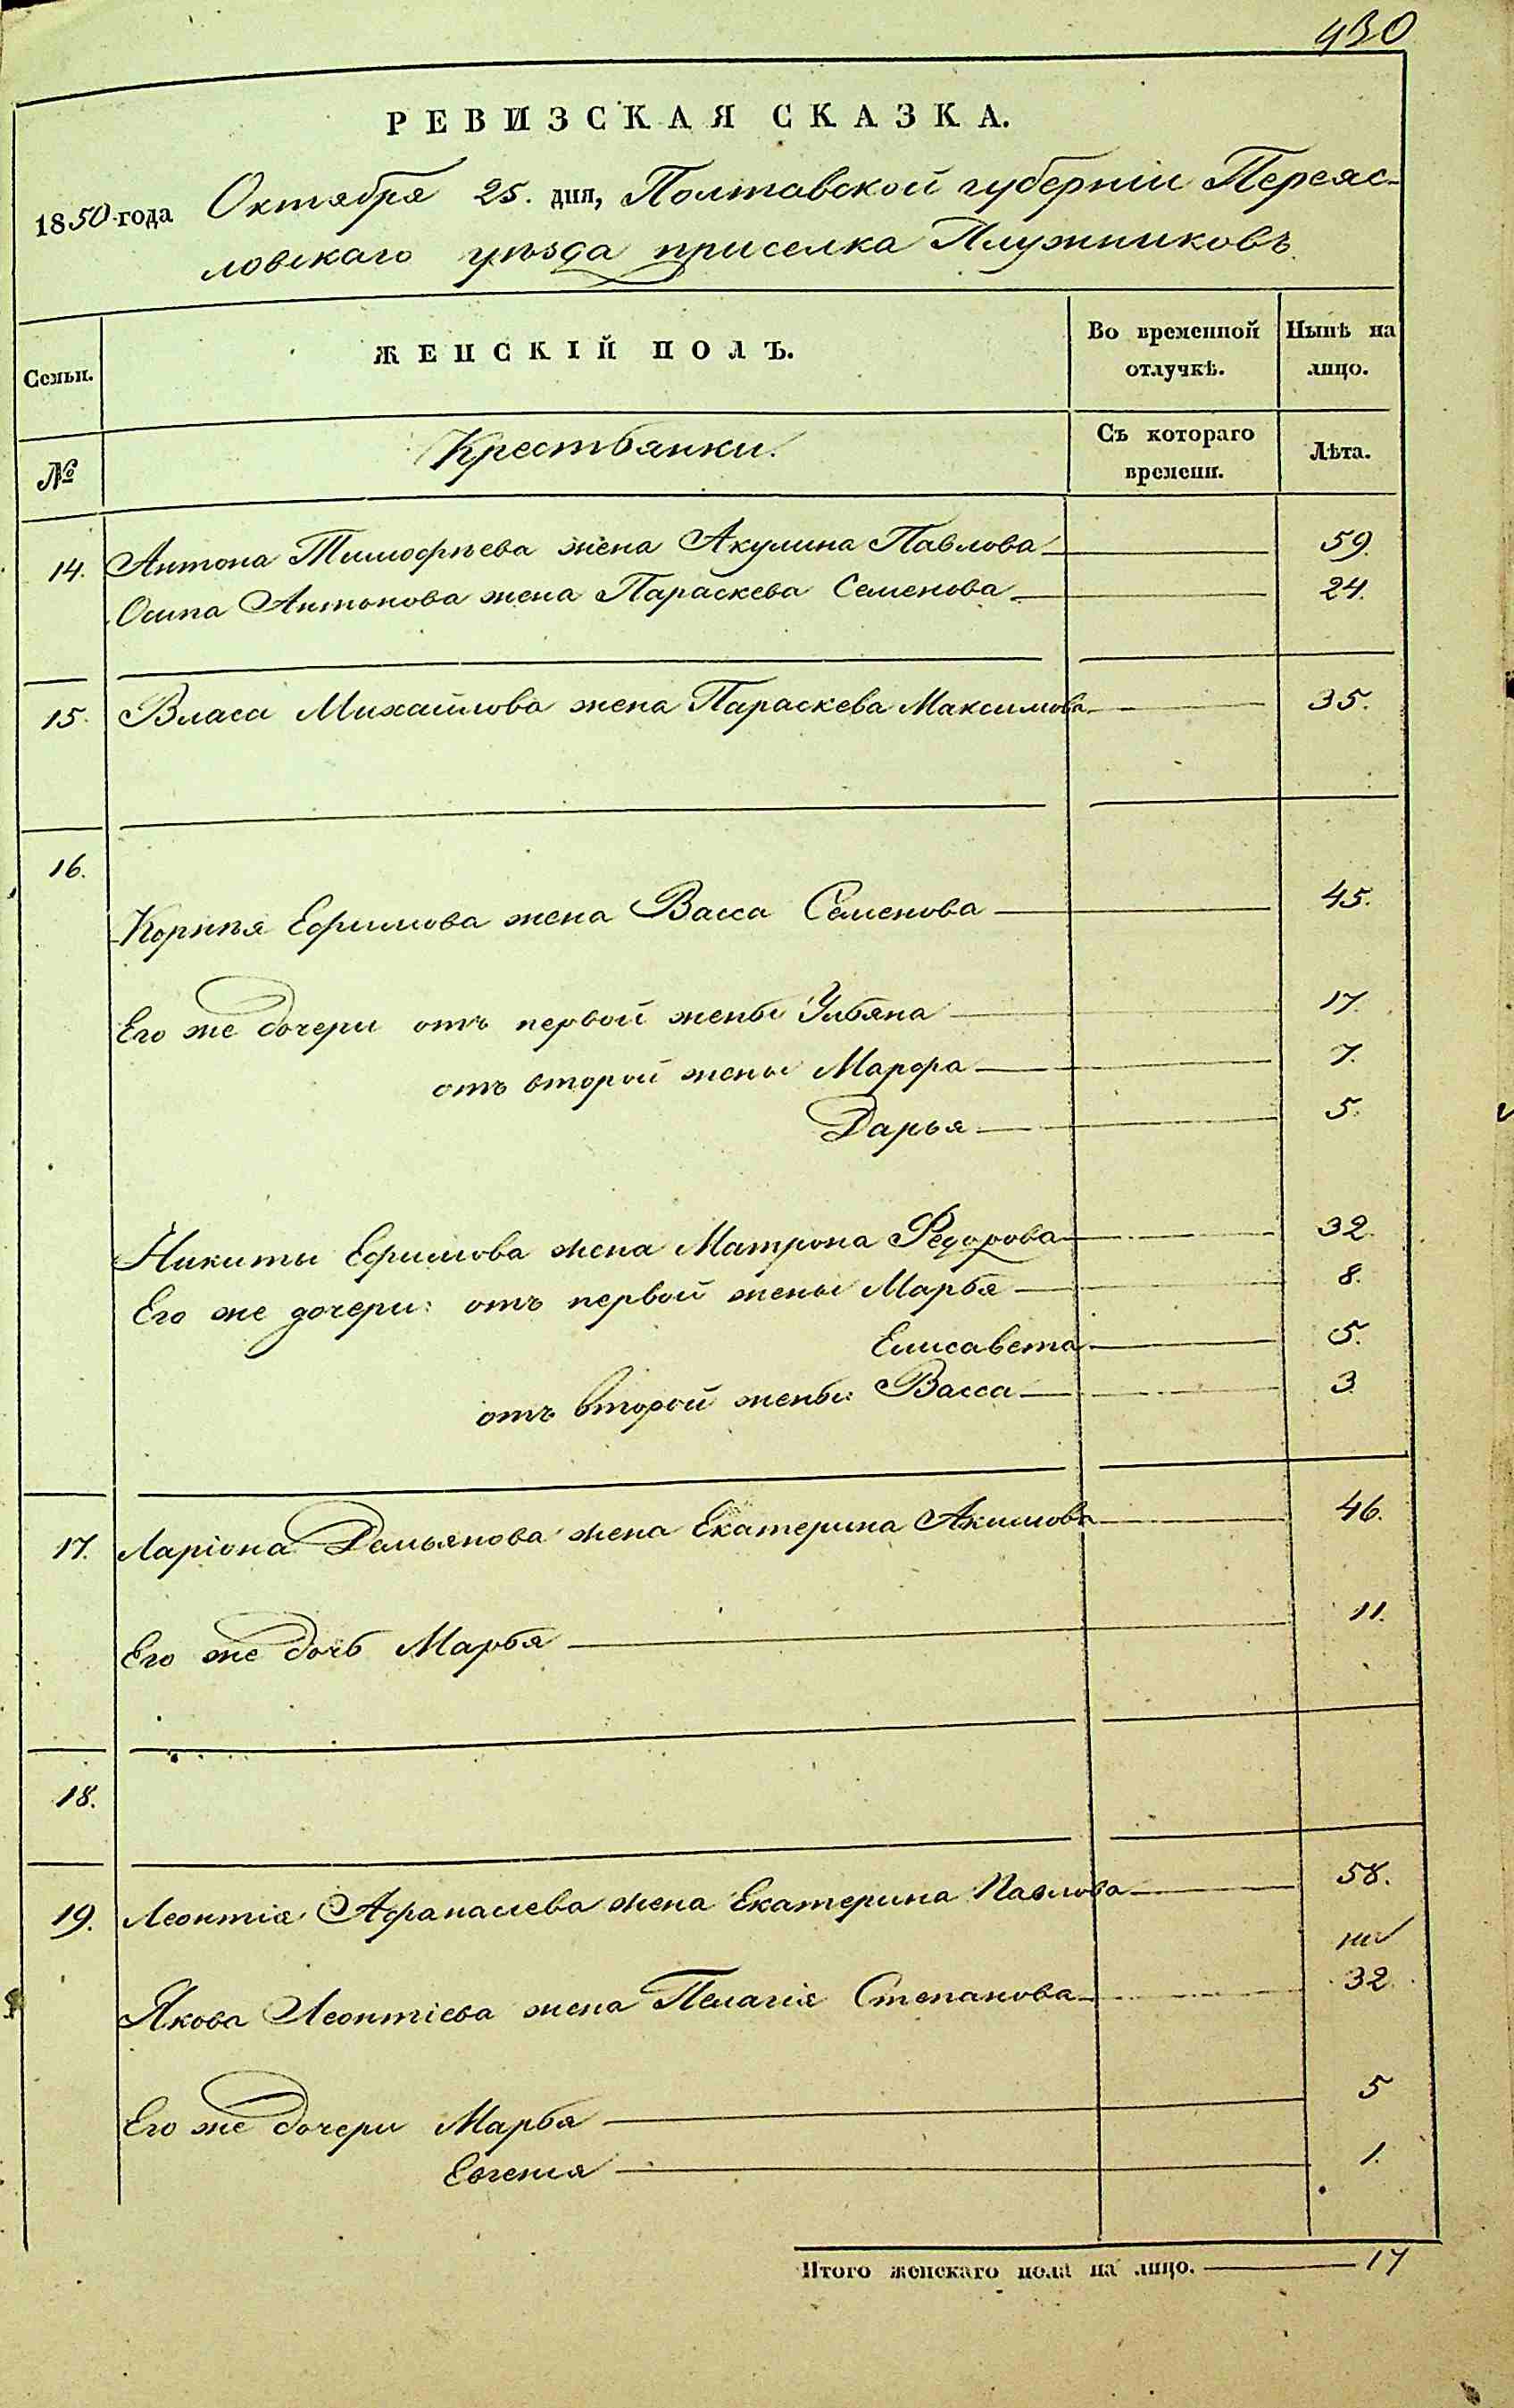 430
РЕВИЗСКАЯ СКАЗКА.
1850 года Октября 25. дня, Полтавской губерніи Переяс-
ловскаго уѣзда приселка Плужниковъ.
Семьи.
ЖЕНСКІЙ ПОЛЪ.
Во временной отлучкѣ.
Нынѣ на лицо.
№
Крестьянки.
Съ котораго времени.
Лѣта.
14. Антона Тимофѣева жена Акулина Павлова 59.
Осипа Антонова жена Параскева Семенова 24.
15. Власа Михайлова жена Параскева Максимова 35.
16.
Корнѣя Ефимова жена Васса Семенова 45.
Его же дочери отъ первой жены Ульяна 17.
отъ второй жены Марфа 7.
Дарья 5.
Никиты Ефимова жена Матрона Федорова 32.
Его же дочери: отъ первой жены Марья 8.
Елисавета 5.
отъ второй жены: Васса 3
17. Ларіона Демьянова жена Екатерина Акимова 46.
Его же дочь Марья 11.
18.
19. Леонтія Афанасиева жена Екатерина Павлова 58.
Якова Леонтіева жена Пелагія Степанова 32.
Его же дочери Марья 5
Евгения 1.
Итого женскаго пола на лицо. 17